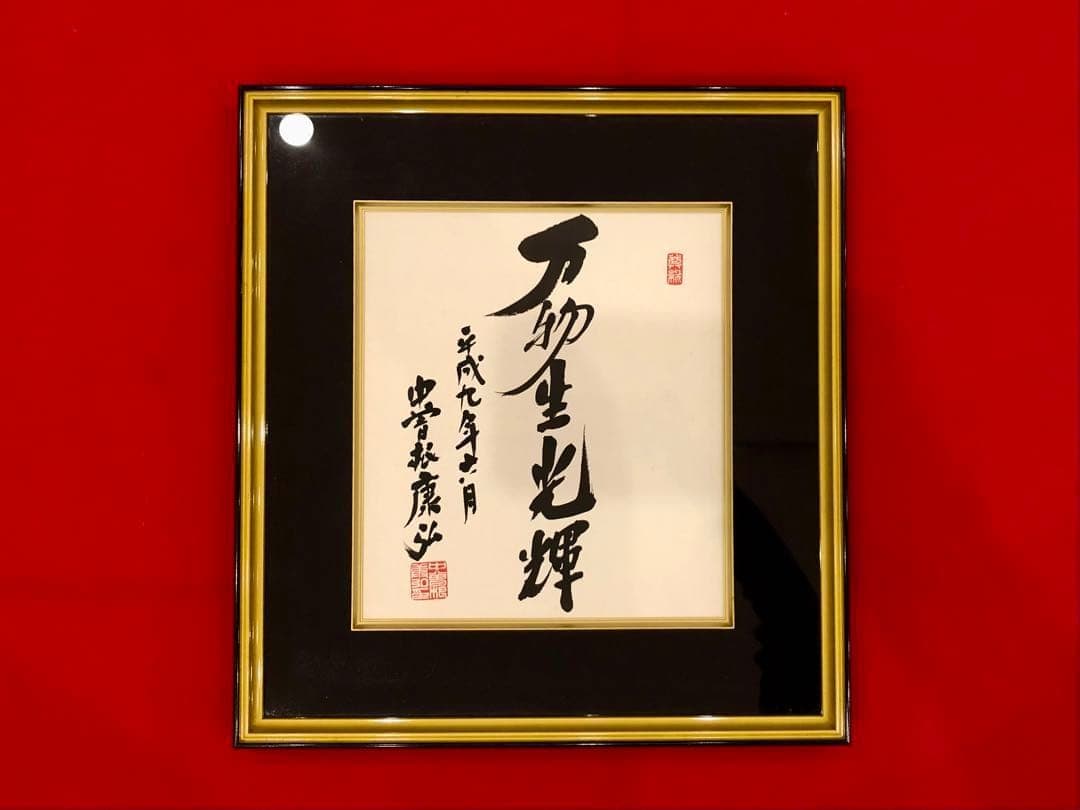 万物生光輝
平成九年六月
中曽根康弘